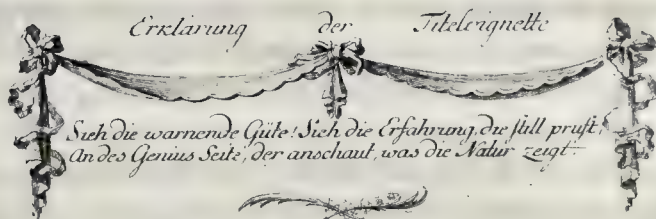 Erklärung der Titelvignette
Sieh die warnende Güte! Sieh die Erfahrung, die still pruft,
An des Genius Seite, der anschaut, was die Natur zeigt.